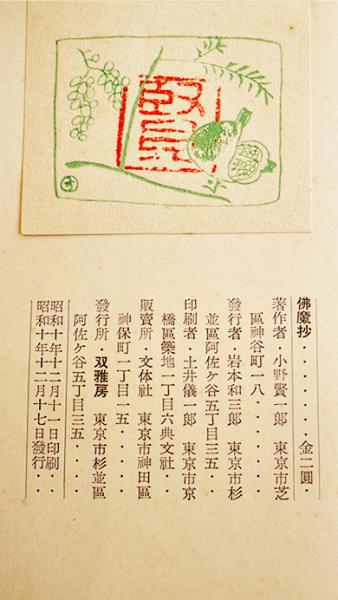 佛魔抄・・・・・・金二圓・
著作者・小野賢一郎 東京市芝
區神谷町一八・・・・・・・
發行者・岩本和三郎 東京市杉
並區阿佐ケ谷五丁目三五・・
印刷者・土井儀一郎 東京市京
橋區築地一丁目六典文社・・
販賣所・文体社 東京市神田區
神保町一丁目一五・・・・・
發行所・双雅房 東京市杉並區
阿佐ケ谷五丁目三五・・・・
昭和十年十二月十一日印刷・・
昭和十年十二月十七日發行・・